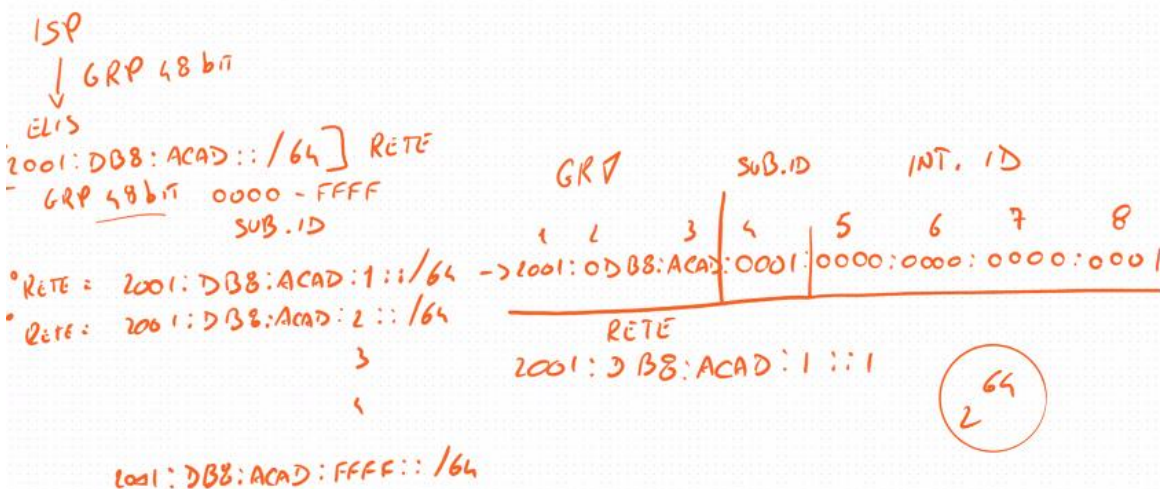 ISP
GRP 48 bit
ELIS
2001:DB8:ACAD::/64] RETE
GRP 48 bit 0000 - FFFF
SUB.ID
RETE: 2001:DB8:ACAD:1::/64
RETE: 2001:DB8:ACAD:2::/64
3
4
2001:DB8:ACAD:FFFF::/64
GRP SUB.ID INT. ID
1 2 3 4 5 6 7 8
->2001:0DB8:ACAD:0001:0000:0000:0000:0001
RETE
2001:DB8:ACAD:1::1
2^64